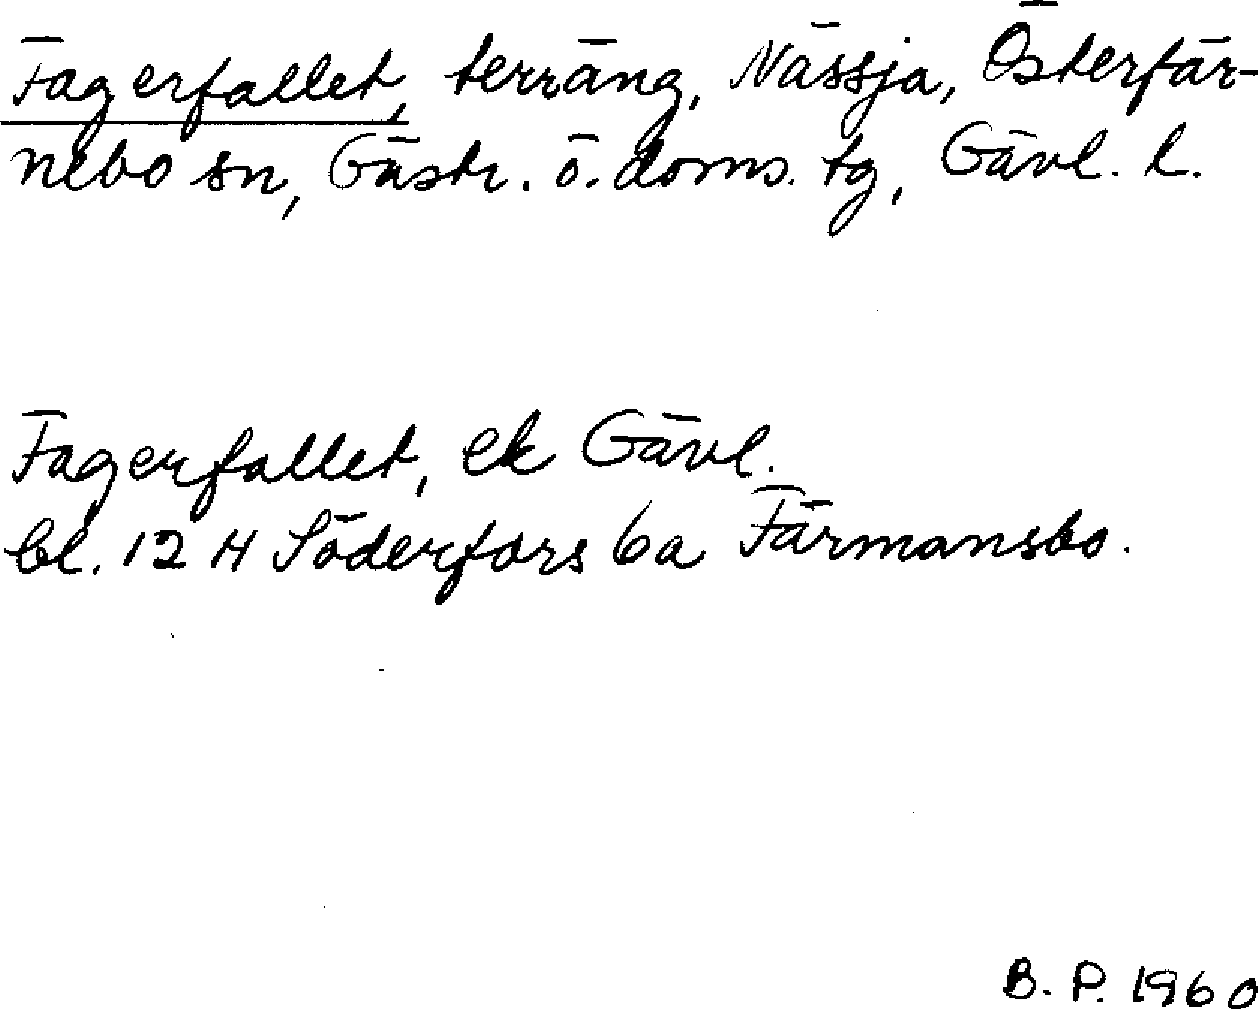 Fagerfallet, terräng, Nässja, Österfär-
nebo sn, Gästr. ö. doms. tg, Gävl. l.
Fagerfallet, ek Gävl.
bl. 12 H Söderfors 6a Färmansbo.
B. P. 1960